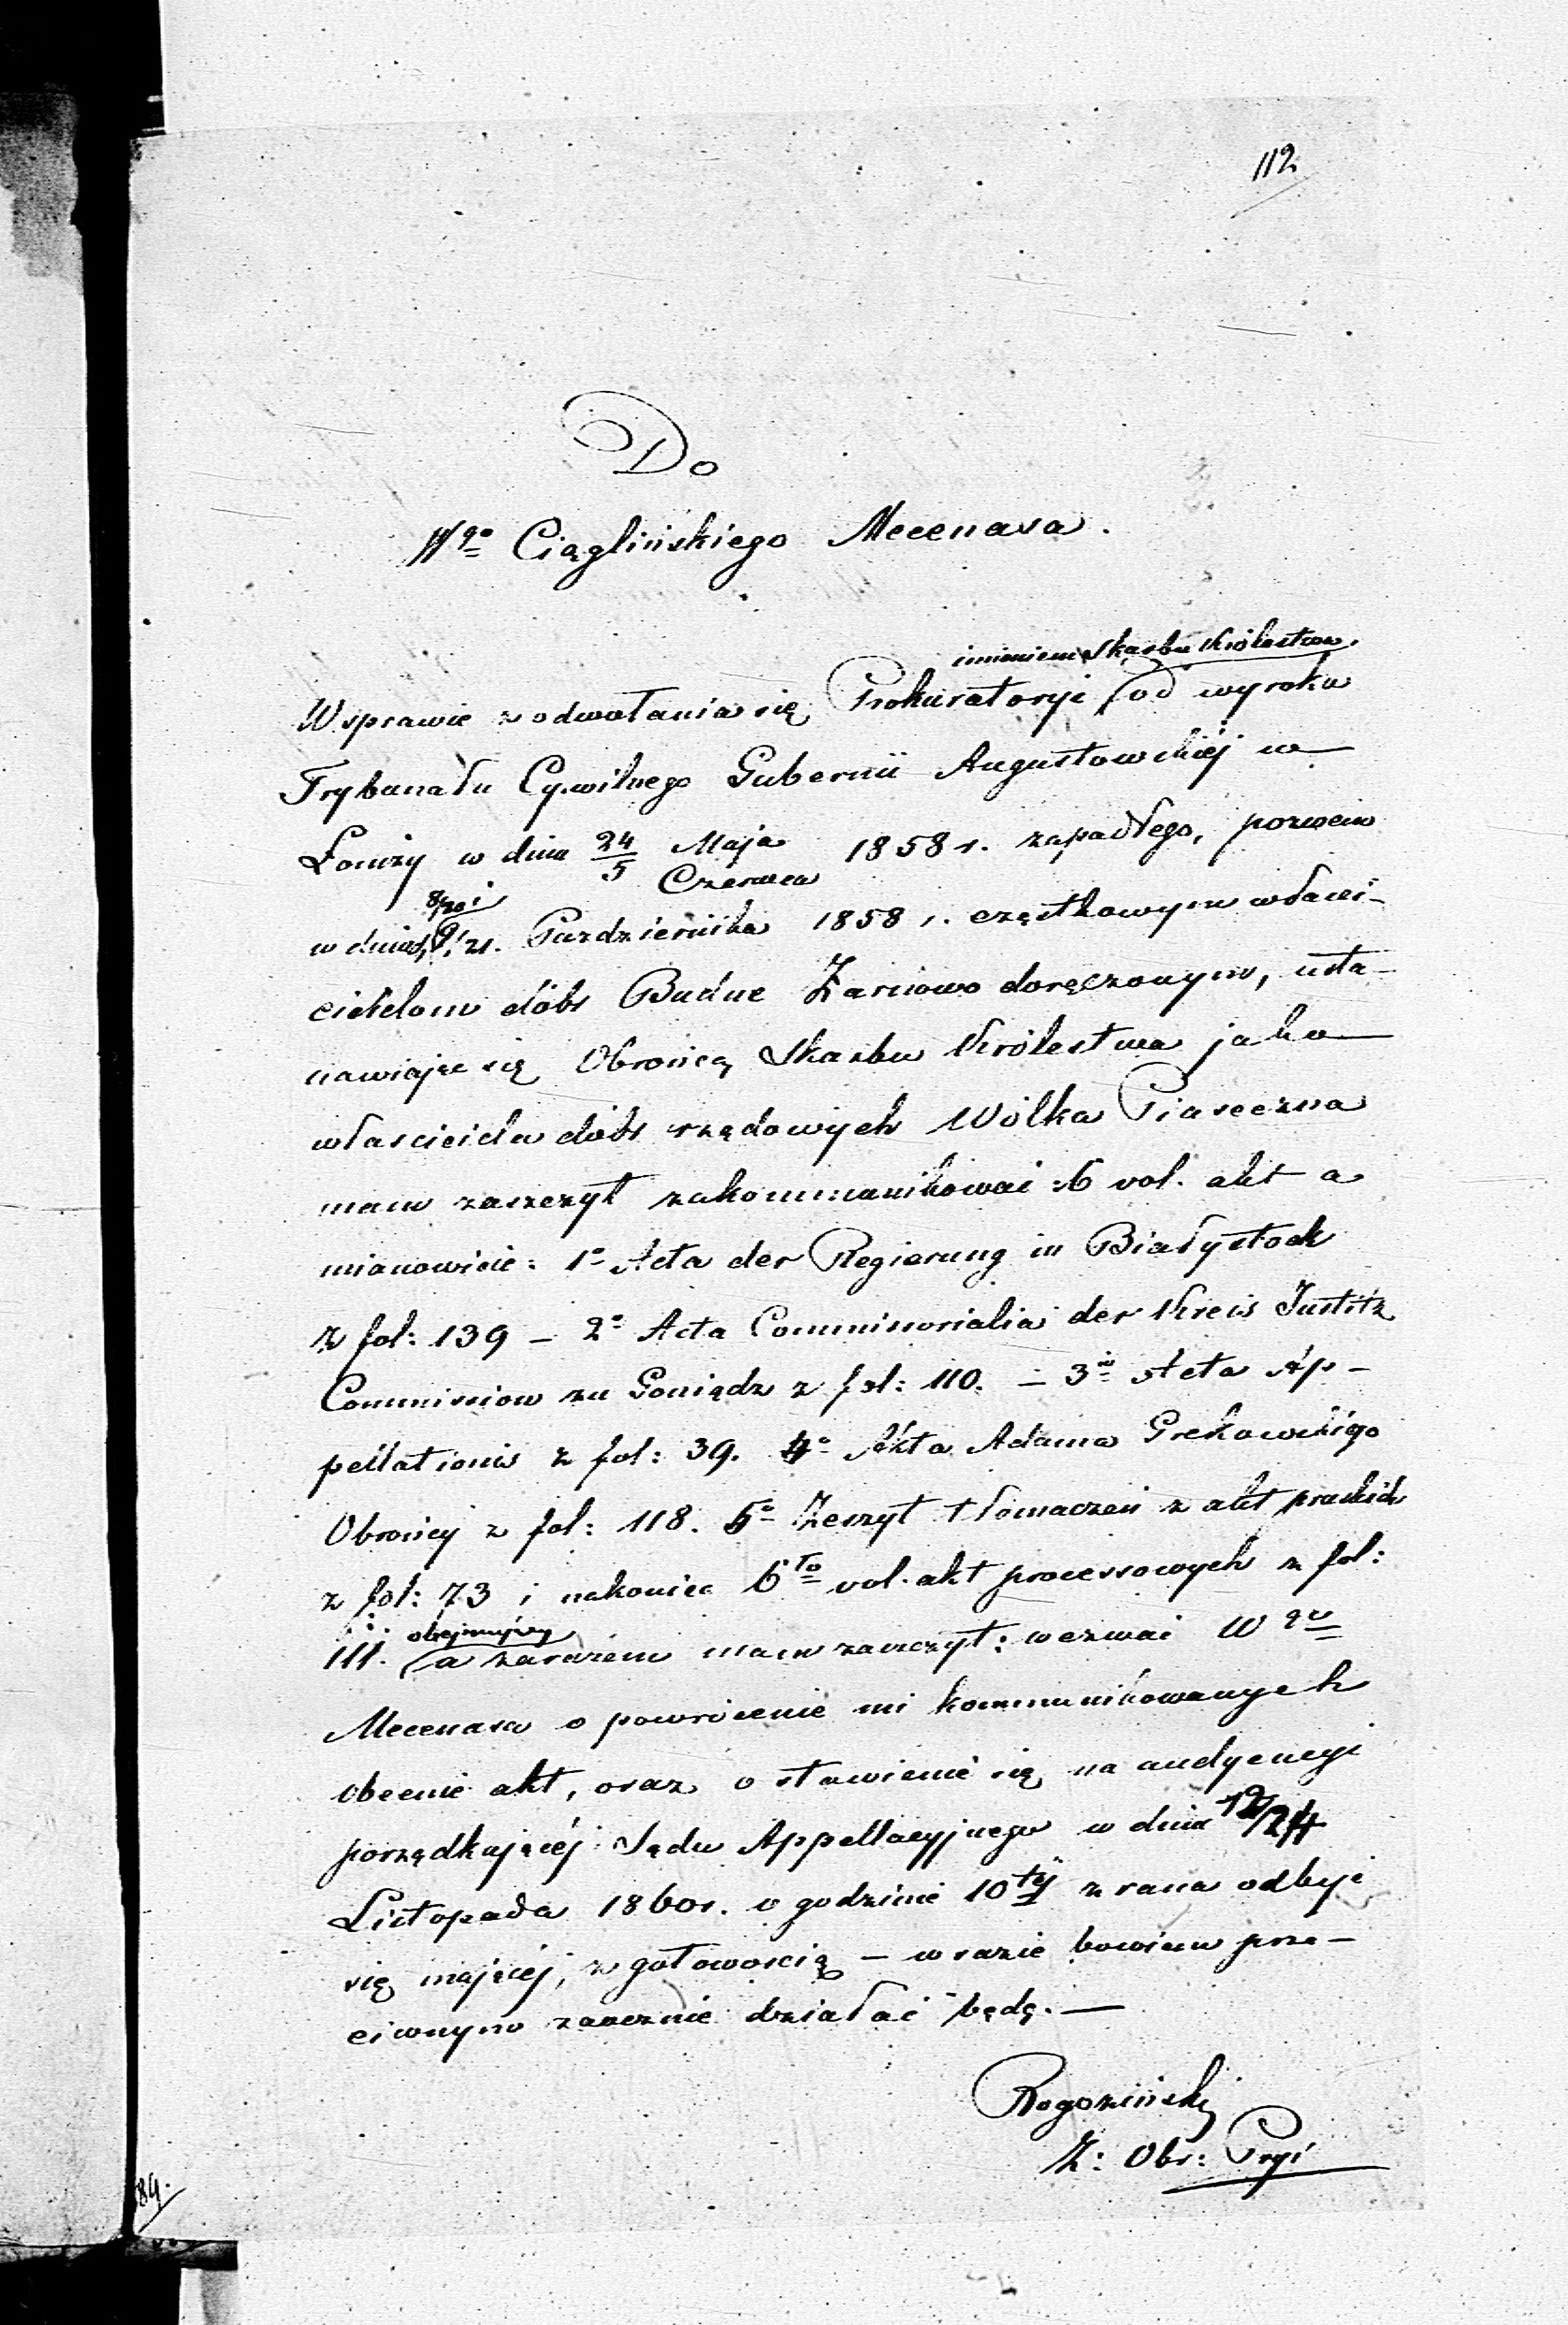 112
Do
Wgo Ciąglińskiego Mecenasa.
imieniem Skarbu Królestwa.
W sprawie z odwołania się Prokuratoryi od wyroku
Trybunału Cywilnego Gubernii Augustowskiéj w
Łomży w dniu 24/5 Maja/Czerwca 1858 r. zapadłego, pozwem
8/20 i
w dniach 9/21. Października 1858 r. cząstkowym właści-
cielom dóbr Budne Żarnowo doręczonym, usta-
nawiając się Obrońcą Skarbu Królestwa jako
właściciela dóbr rządowych Wólka Piaseczna
mam zaszczyt zakommunikować 6 vol. akt a
mianowicie: 1o Acta der Regierung in Białystock
z fol: 139 – 2o Acta Commissorialia der Kreis Justitz
Commission zu Goniądz z fol: 110. – 3o Acta Ap-
pellationis z fol: 39. 4o Akta Adama Grekowskiego
Obrońcy z fol: 118. 5o Zeszyt tłomaczeń z akt pruskich
z fol: 73 i nakoniec 6to vol. akt processowych z fol:
obejmujący
111. a zarazem mam zaszczyt: wezwać Wgo
Mecenasa o powrócenie mi kommunikowanych
obecnie akt, oraz o stawienie się na audyencyi
porządkującéj Sądu Appellacyjnego w dniu 12/24
Listopada 1860 r. o godzinie 10téj z rana odbyć
się mającéj, z gotowością – w razie bowiem prze-
ciwnym zaocznie działać będę. —
Rogoziński
Z: Obr: Pryi
84.